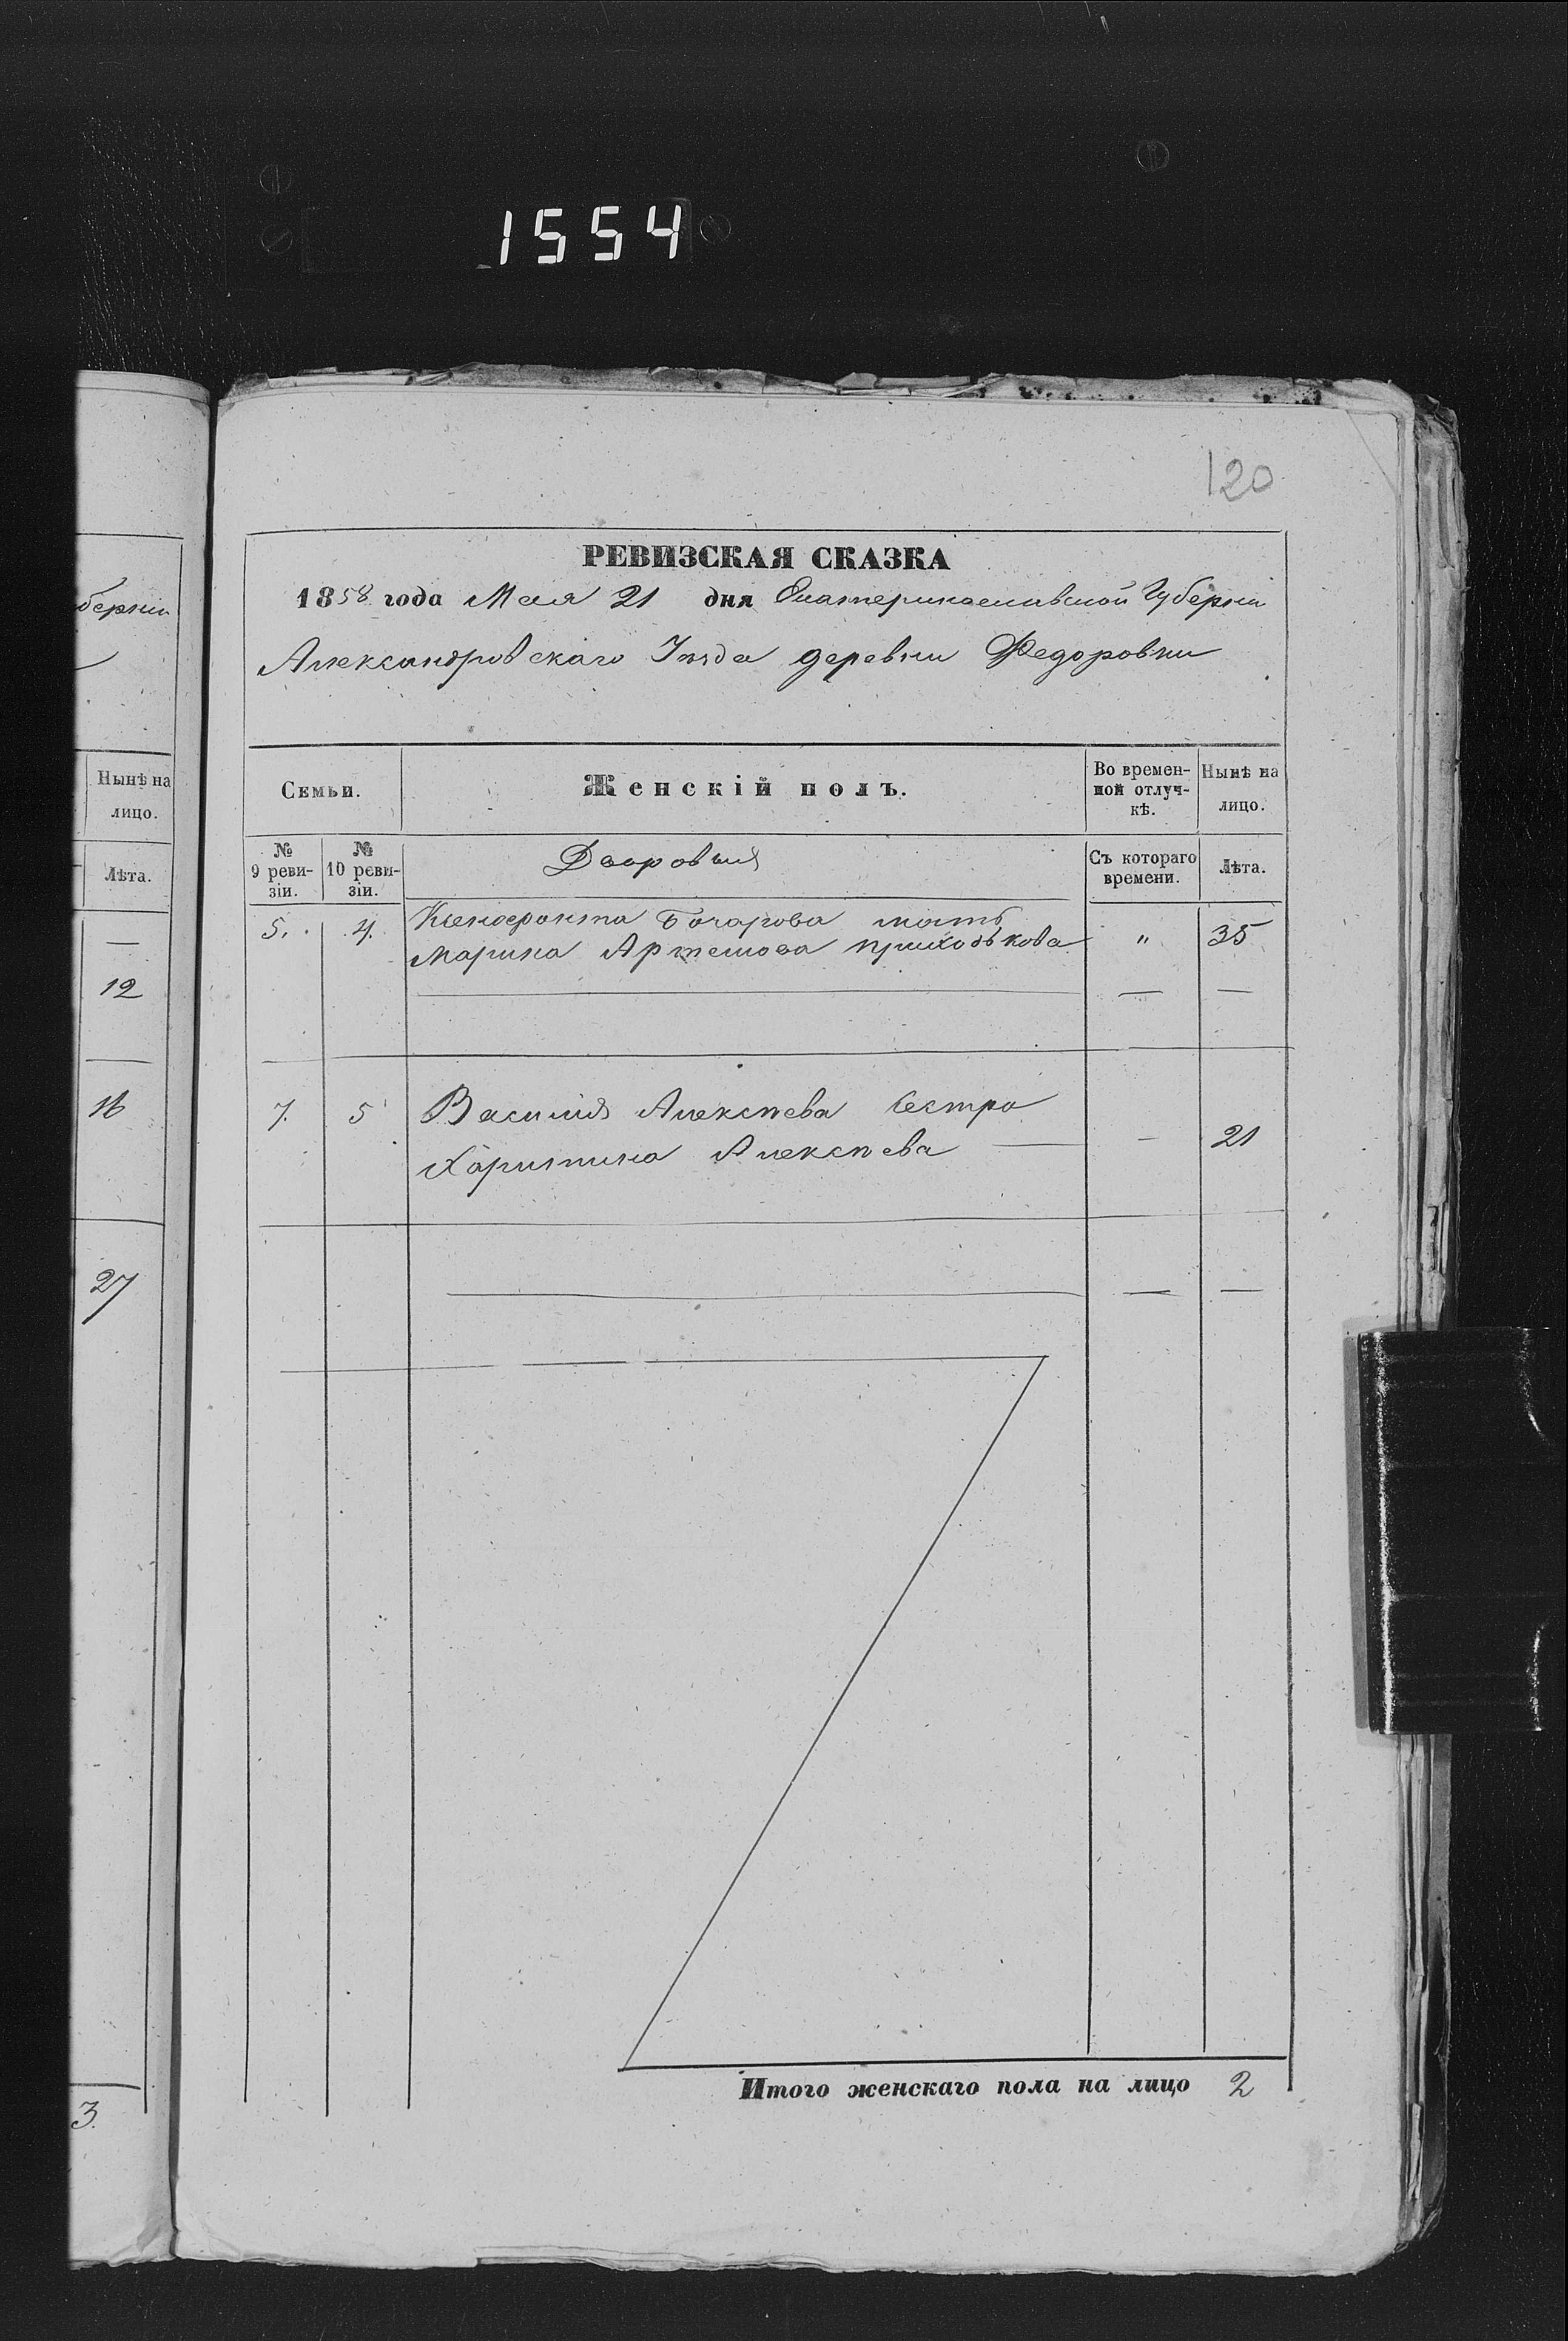 1554
120
берніи
Нынѣ на
лицо.
Лѣта.
—
12
16
27
3.
РЕВИЗСКАЯ СКАЗКА
1858 года Мая 21 дня Екатеринославской Губерніи
Александровскаго Уѣзда деревни Федоровки
Семьи.
Женскій полъ.
Во времен-
ной отлуч-
кѣ.
Нынѣ на
лицо.
№
9 реви-
зіи.
№
10 реви-
зіи.
Дворовыя
Съ котораго
времени.
Лѣта.
5. 4. Ксенофонта Бочарова мать
Марина Артемова Приходькова " 35
7. 5 Василия Алексѣева Сестра
Харитина Алексѣева — 21
Итого женскаго пола на лицо 2